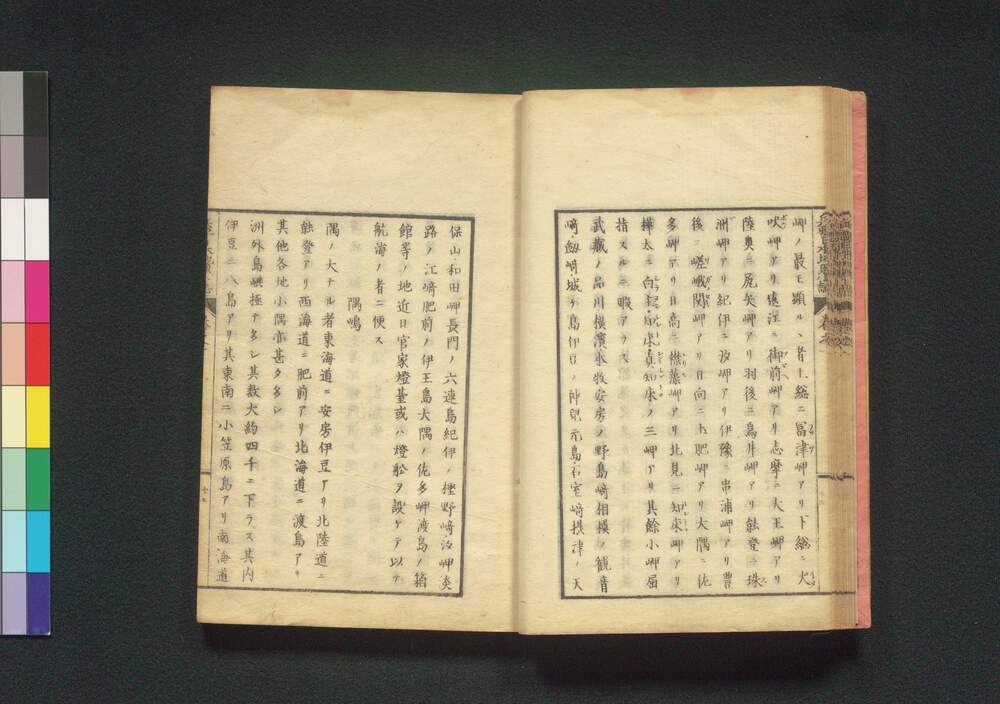 岬ノ最モ顕ルヽ者上総ニ富津岬アリ下総ニ犬
吠岬アリ遠江ニ御前岬アリ志摩ニ大王岬アリ
陸奥ニ尻矢岬アリ羽後ニ鳥井岬アリ能登ニ珠
洲岬アリ紀伊ニ汐岬アリ伊豫ニ串浦岬アリ豊
後ニ嵯峨関岬アリ日向ニ土肥岬アリ大隅ニ佐
多岬アリ日高ニ襟藻岬アリ北見ニ知床岬アリ
樺太ニ白主知床真知床ノ三岬アリ其餘小岬屈
指スルニ暇アラス
武蔵ノ品川横濱本牧安房ノ野島﨑相模ノ観音
﨑劔﨑城ヶ島伊豆ノ神子元島石室﨑摂津ノ天
保山和田岬長門ノ六連島紀伊ノ樫野﨑汐岬淡
路ノ江﨑肥前ノ伊王島大隅ノ佐多岬渡島ノ箱
館等ノ地近日官家燈臺或ハ燈舩ヲ設ケテ以テ
航海ノ者ニ便ス
隅嶋
隅ノ大ナル者東海道ニ安房伊豆アリ北陸道ニ
能登アリ西海道ニ肥前アリ北海道ニ渡島アリ
其他各地小隅亦甚タ多シ
洲外島嶼極テ多シ其数大約四千ニ下ラス其内
伊豆ニ八島アリ其東南ニ小笠原島アリ南海道